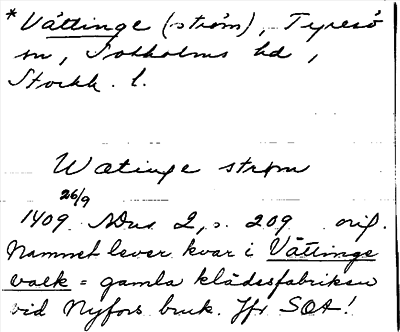 * Vättinge (ström), Tyresö
sn, Sotholms hd,
Stockh. l.
Wætinge strøm
26/9
1409 SDns 2, s. 209 orig.
Namnet lever kvar i Vättinge
valk = gamla klädesfabriken
vid Nyfors bruk. Jfr SOA!